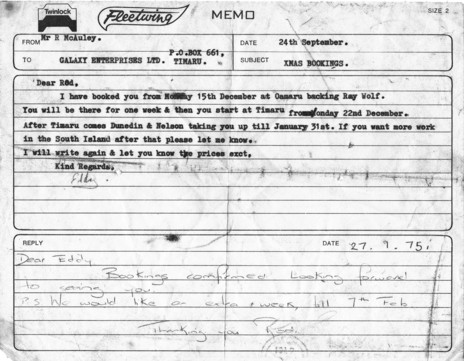 Twinlock
Fleetwing
MEMO
SIZE 2
FROM Mr R McAuley.
DATE 24th September.
P.O.BOX 661,
TO GALAXY ENTERPRISES LTD. TIMARU.
SUBJECT XMAS BOOKINGS.
Dear Rod,
I have booked you from Monday 15th December at Oamaru backing Ray Wolf.
You will be there for one week & then you start at Timaru from Monday 22nd December.
After Timaru comes Dunedin & Nelson taking you up till January 31st. If you want more work
in the South Island after that please let me know.
I will write again & let you know the prices exct,
Kind Regards,
Eddy.
REPLY
DATE 27. 9. 75
Dear Eddy
Bookings confirmed Looking forward
to seeing you
P.S We would like an extra week, till 7th Feb
Thanking you Rod